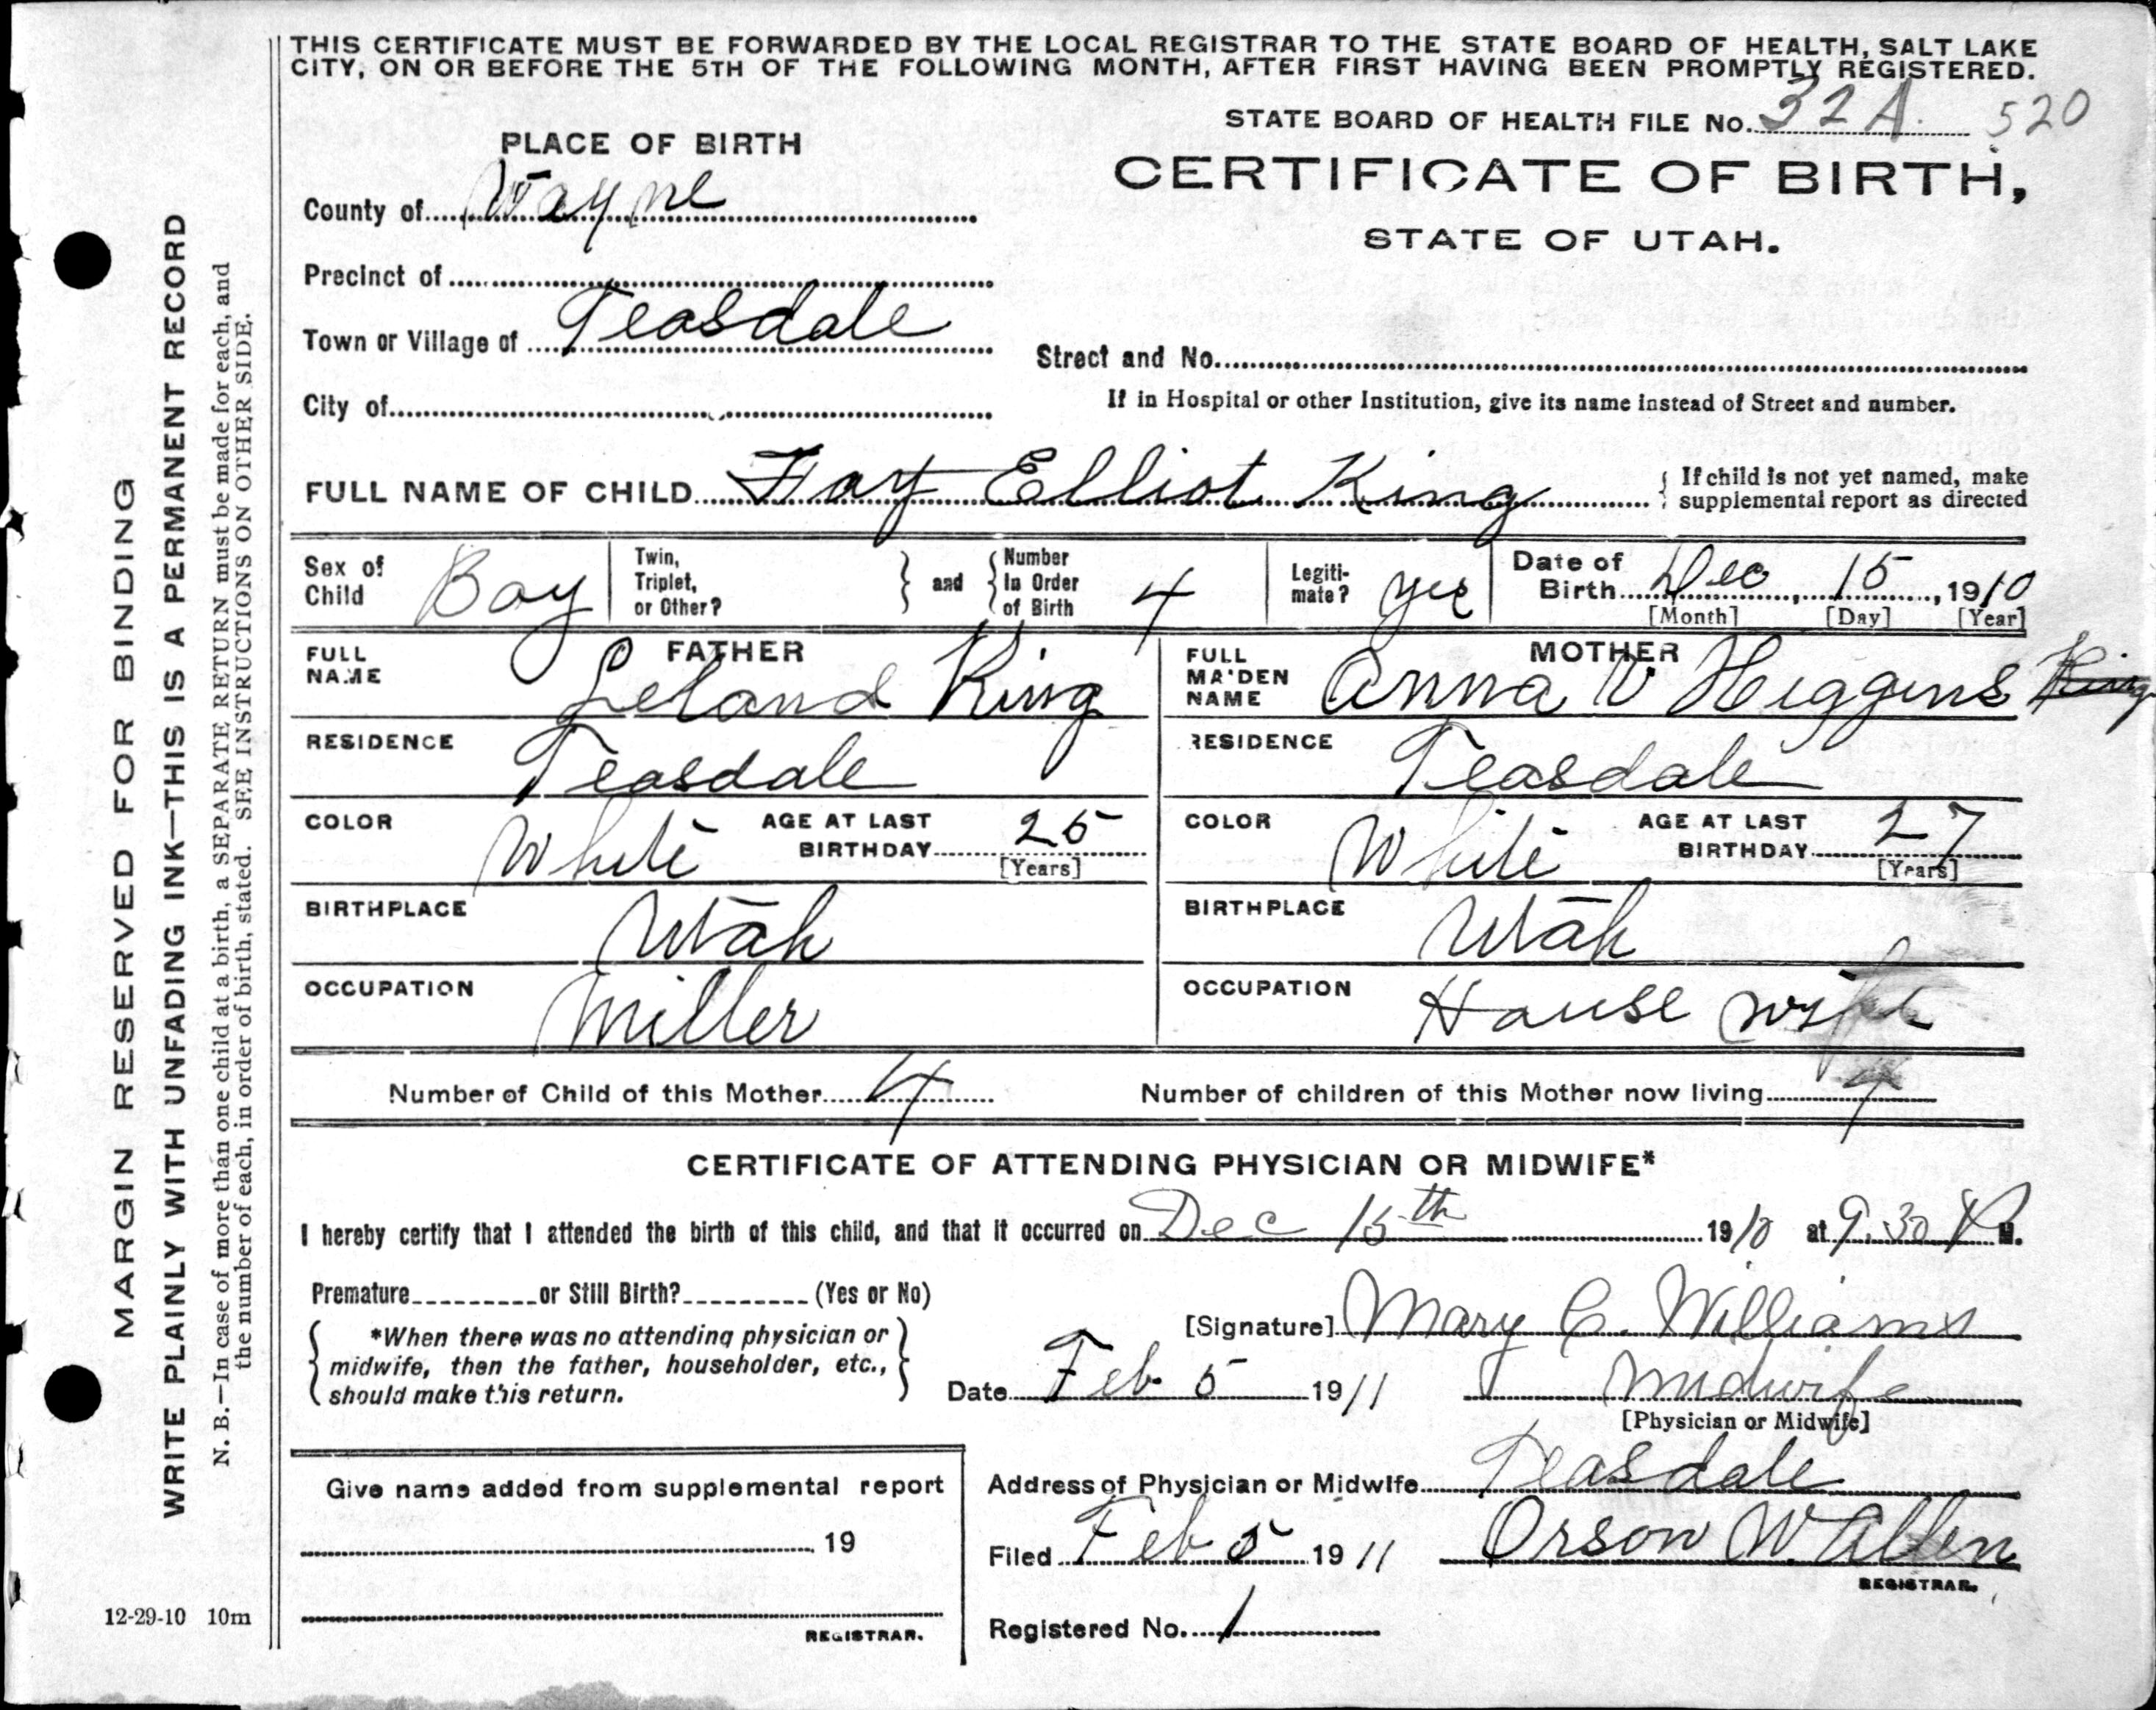 THIS CERTIFICATE MUST BE FORWARDED BY THE LOCAL REGISTRAR TO THE STATE BOARD OF HEALTH, SALT LAKE
CITY, ON OR BEFORE THE 5TH OF THE FOLLOWING MONTH, AFTER FIRST HAVING BEEN PROMPTLY REGISTERED.
STATE BOARD OF HEALTH FILE No. 32 A. 520
PLACE OF BIRTH
CERTIFICATE OF BIRTH,
STATE OF UTAH.
County of Wayne
Precinct of
Town or Village of Teasdale
Street and No.
City of
If in Hospital or other Institution, give its name instead of Street and number.
FULL NAME OF CHILD Fay Elliot King
{ If child is not yet named, make
supplemental report as directed
Sex of Child Boy
Twin, Triplet, or Other? } and { Number In Order of Birth 4
Legitimate? yes
Date of Birth Dec, 15, 1910
[Month] [Day] [Year]
FATHER
FULL NAME Leland King
RESIDENCE Teasdale
COLOR White AGE AT LAST BIRTHDAY 25
[Years]
BIRTHPLACE Utah
OCCUPATION Miller
MOTHER
FULL MAIDEN NAME Anna V Higgins King
RESIDENCE Teasdale
COLOR White AGE AT LAST BIRTHDAY 27
[Years]
BIRTHPLACE Utah
OCCUPATION House wife
Number of Child of this Mother 4 Number of children of this Mother now living 4
CERTIFICATE OF ATTENDING PHYSICIAN OR MIDWIFE*
I hereby certify that I attended the birth of this child, and that it occurred on Dec 15th 1910 at 9.30 P M.
Premature or Still Birth? (Yes or No)
*When there was no attending physician or
midwife, then the father, householder, etc.,
should make this return.
[Signature] Mary C. Williams
Date Feb 5 1911 midwife
[Physician or Midwife]
Give name added from supplemental report
19
REGISTRAR.
Address of Physician or Midwife Teasdale
Filed Feb 5 1911 Orson W. Allen
REGISTRAR.
Registered No. 1
12-29-10 10m
MARGIN RESERVED FOR BINDING
WRITE PLAINLY WITH UNFADING INK—THIS IS A PERMANENT RECORD
N. B.—In case of more than one child at a birth, a SEPARATE RETURN must be made for each, and
the number of each, in order of birth, stated. SEE INSTRUCTIONS ON OTHER SIDE.